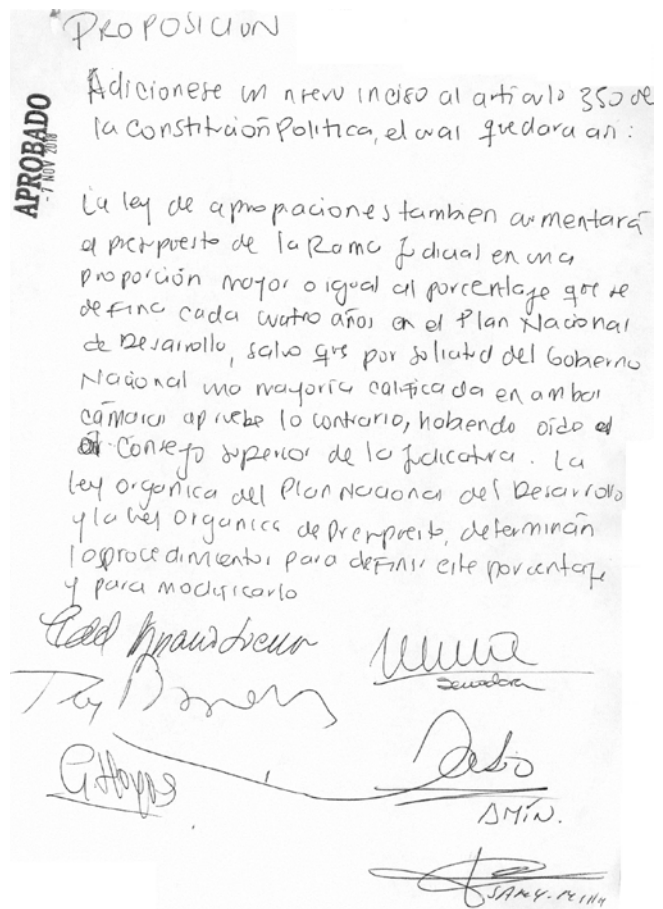 PROPOSICION
APROBADO
- 7 NOV 2018
Adicionese un nuevo inciso al articulo 350 de
la Constitución Politica, el cual quedara asi:
La ley de apropiaciones tambien aumentará
el presupuesto de la Rama Judicial en una
proporción mayor o igual al porcentaje que se
defina cada cuatro años en el Plan Nacional
de Desarrollo, salvo que por solicitud del Gobierno
Nacional una mayoría calificada en ambas
cámaras apruebe lo contrario, habiendo oido el
Consejo Superior de la Judicatura. La
ley organica del Plan Nacional del Desarrollo
y la ley organica de Presupuesto, determinan
los procedimientos para definir este porcentaje
y para modificarlo
Senadora
AMÍN.